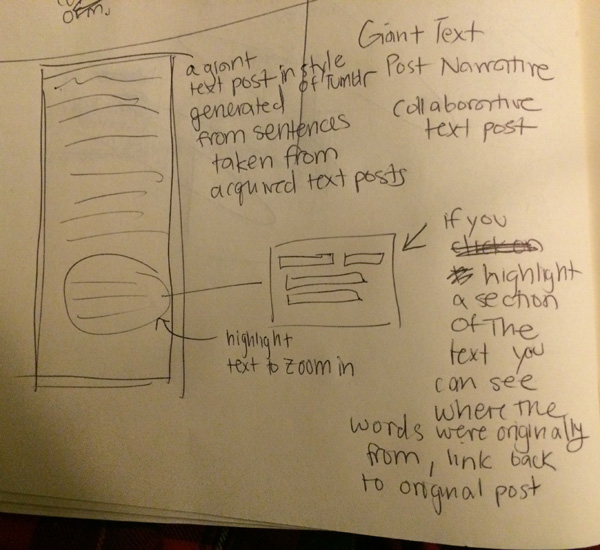 orm.
Giant Text
Post Narrative
collaborative
text post
a giant
text post in style
of Tumblr
generated
from sentences
taken from
acquired text posts
if you
highlight
a section
of The
text you
can see
where the
words were originally
from, link back
to original post
highlight
text to zoom in